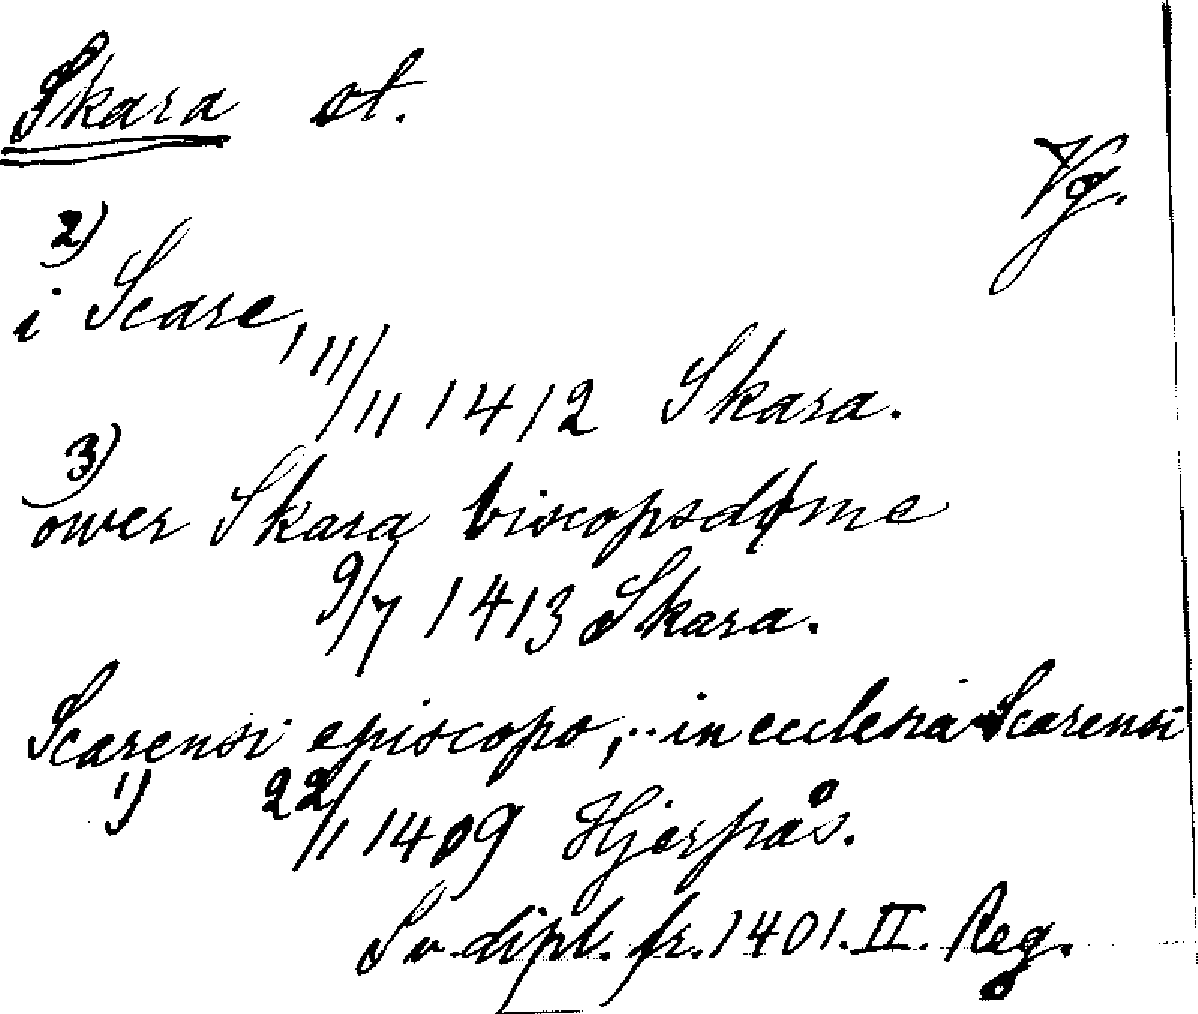 Skara st.
Vg.
2)
i Scare,
11/11 1412 Skara.
3)
ower Skara biscopsdøme
9/7 1413 Skara.
Scarensi episcopo, .. in ecclesia Scarensi
1) 22/1 1409 Hjerpås.
Sv. dipl. fr. 1401. II. Reg.